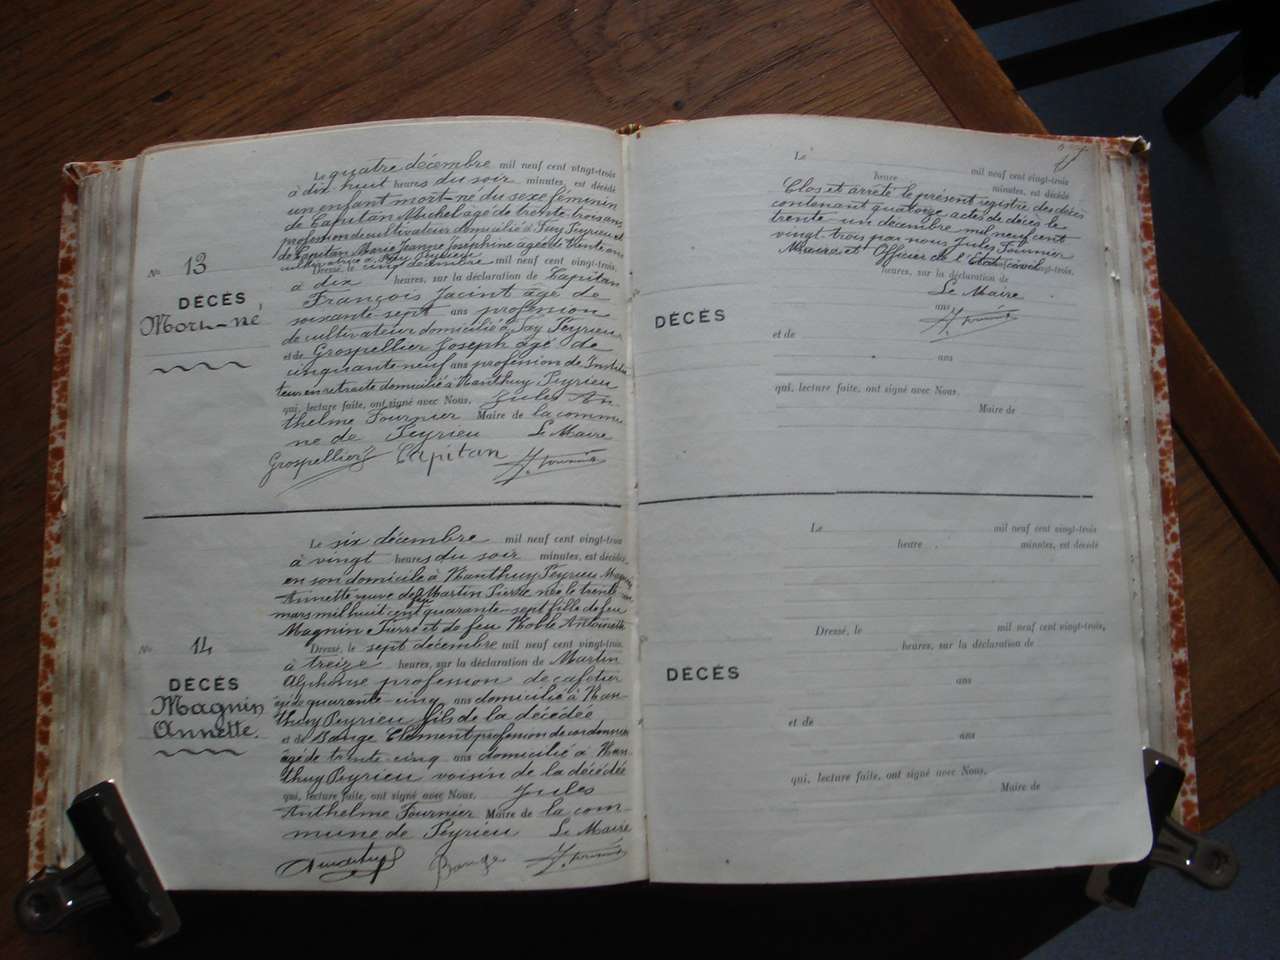 Le quatre décembre mil neuf cent vingt-trois
à dix huit heures du soir minutes, est décédé
un enfant mort-né du sexe féminin
de Capitan Michel âgé de trente trois ans
profession de cultivateur domicilié à Fay Peyrieu et
de Capitan Marie Jeanne Joséphine agée de trente ans
cultivatrice à Fay Peyrieu
No 13
DÉCÈS
Mort-né
Dressé, le cinq décembre mil neuf cent vingt-trois,
à dix heures, sur la déclaration de Capitan
François Jacint âgé de
soixante sept ans profession
de cultivateur domicilié à Fay Peyrieu
et de Grospellier Joseph âgé de
cinquante neuf ans profession de Institu
teur en retraite domicilié à Nanthuy Peyrieu
qui, lecture faite, ont signé avec Nous. Jules An
thelme Fournier Maire de la commu
ne de Peyrieu Le Maire
Grospellier Capitan J. Fournier
Le six décembre mil neuf cent vingt-trois
à vingt heures du soir minutes, est décédée
en son domicile à Nanthuy Peyrieu Magnin
Annette veuve de Martin Pierre née le trente
mars mil huit cent quarante-sept fille de feu
Magnin Pierre et de feu Noble Antoinette
No 14
DÉCÈS
Magnin
Annette.
Dressé, le sept décembre mil neuf cent vingt-trois,
à treize heures, sur la déclaration de Martin
Alphonse profession de cafetier
âgé de quarante cinq ans domicilié à Nan
thuy Peyrieu fils de la décédée
et de Bange Clément profession de cordonnier
âgé de trente-cinq ans domicilié à Nan
thuy Peyrieu voisin de la décédée
qui, lecture faite, ont signé avec Nous. Jules
Anthelme Fournier Maire de la com
mune de Peyrieu Le Maire
Bange J. Fournier
Le mil neuf cent vingt-trois
heure minutes, est décédé
Clos et arrêté le présent registre des décès
contenant quatorze actes de décès le
trente-un décembre mil neuf cent
vingt trois par nous Jules Fournier
Maire et Officier de l'Etat civil
heures, sur la déclaration de
Le Maire
ans
J. Fournier
DÉCÈS
et de
ans
qui, lecture faite, ont signé avec Nous.
Maire de
Le mil neuf cent vingt-trois
heure minutes, est décédé
Dressé, le mil neuf cent vingt-trois,
heures, sur la déclaration de
DÉCÈS
ans
et de
ans
qui, lecture faite, ont signé avec Nous.
Maire de